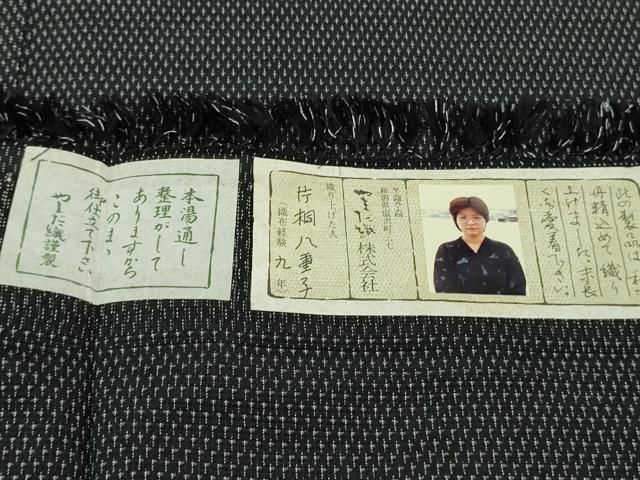 此の製品は
丹精込め、織り
上げました。末長
くご愛着下さい。
新潟県塩沢町
やまだ織株式会社
織り上げた人
片桐八重子
(織布経験 九 年)
本湯通し
整理がして
ありますから
このまゝ
御仕立て下さい
やまだ織謹製